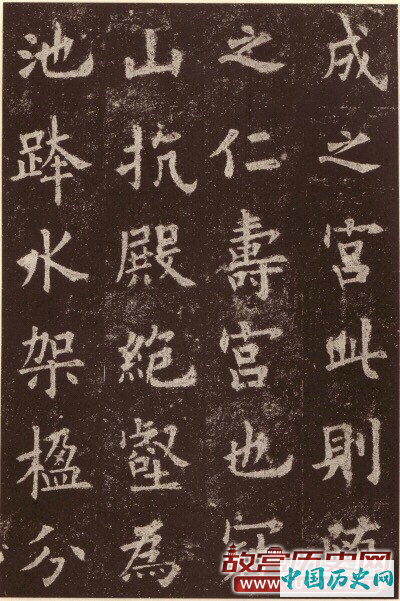 成之宮此則
之仁壽宮也冠
山抗殿絶壑為
池跨水架楹分
故宫历史网
中国历史网